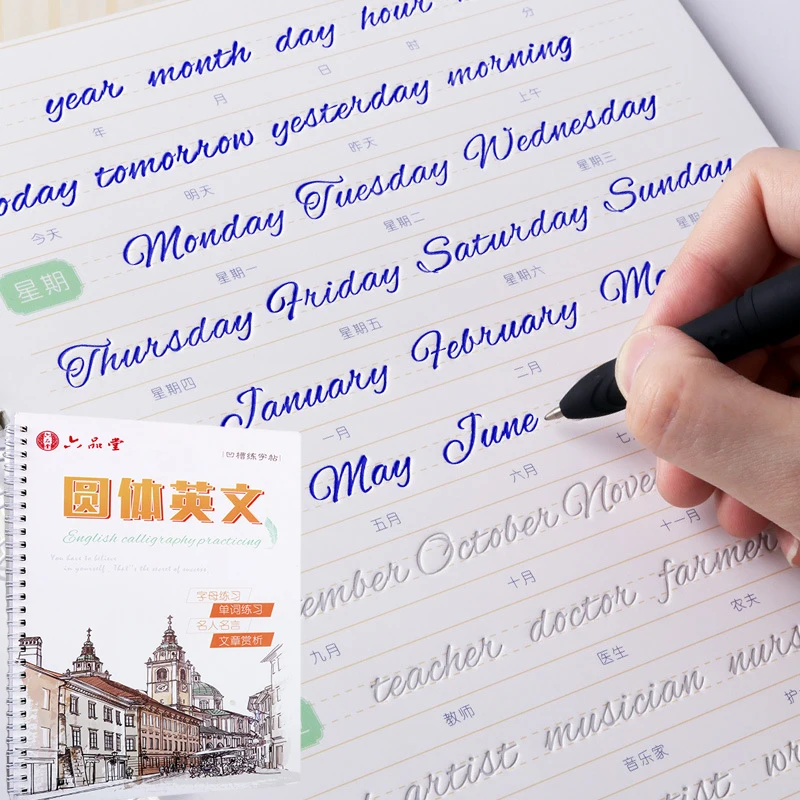 year month day hour
年 月 日 时 分
tomorrow yesterday morning
今天 明天 昨天 上午
Monday Tuesday Wednesday
星期
星期一 星期二 星期三
Thursday Friday Saturday Sunday
星期四 星期五 星期六
January February
一月 二月
May June
五月 六月
October
九月 十月 十一月
teacher doctor farmer
教师 医生 农夫
artist musician
音乐家
六品堂
凹槽练字帖
圆体英文
English calligraphy practicing
You have to believe
in yourself. That's the secret of success
字母练习
单词练习
名人名言
文章赏析